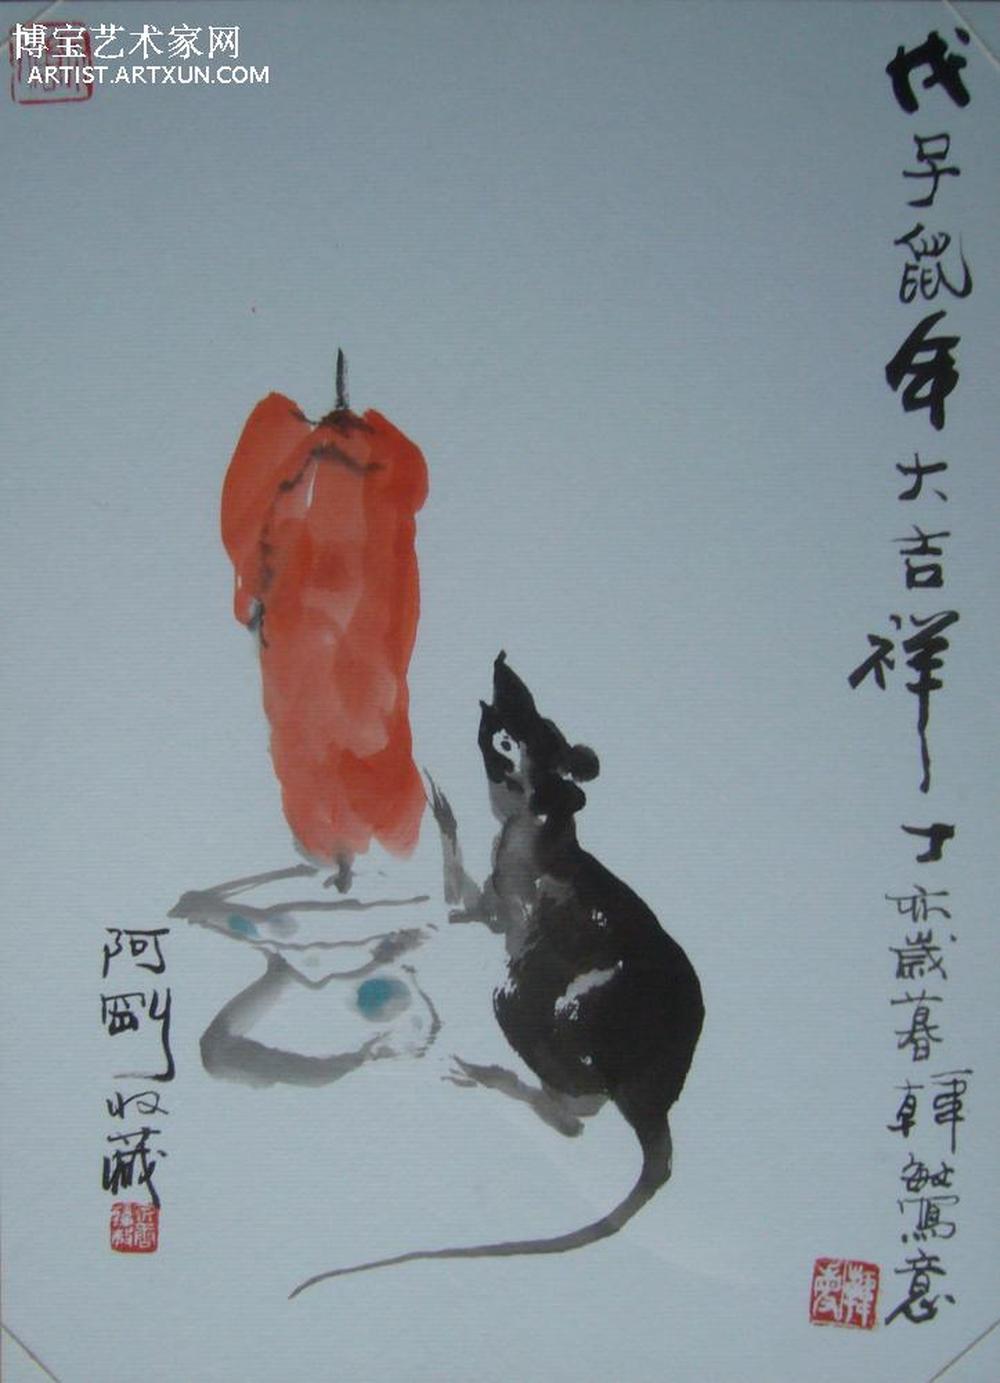 博宝艺术家网
ARTIST.ARTXUN.COM
戊子鼠年大吉祥丁亥歲暮韓敏寫意
阿剛收藏